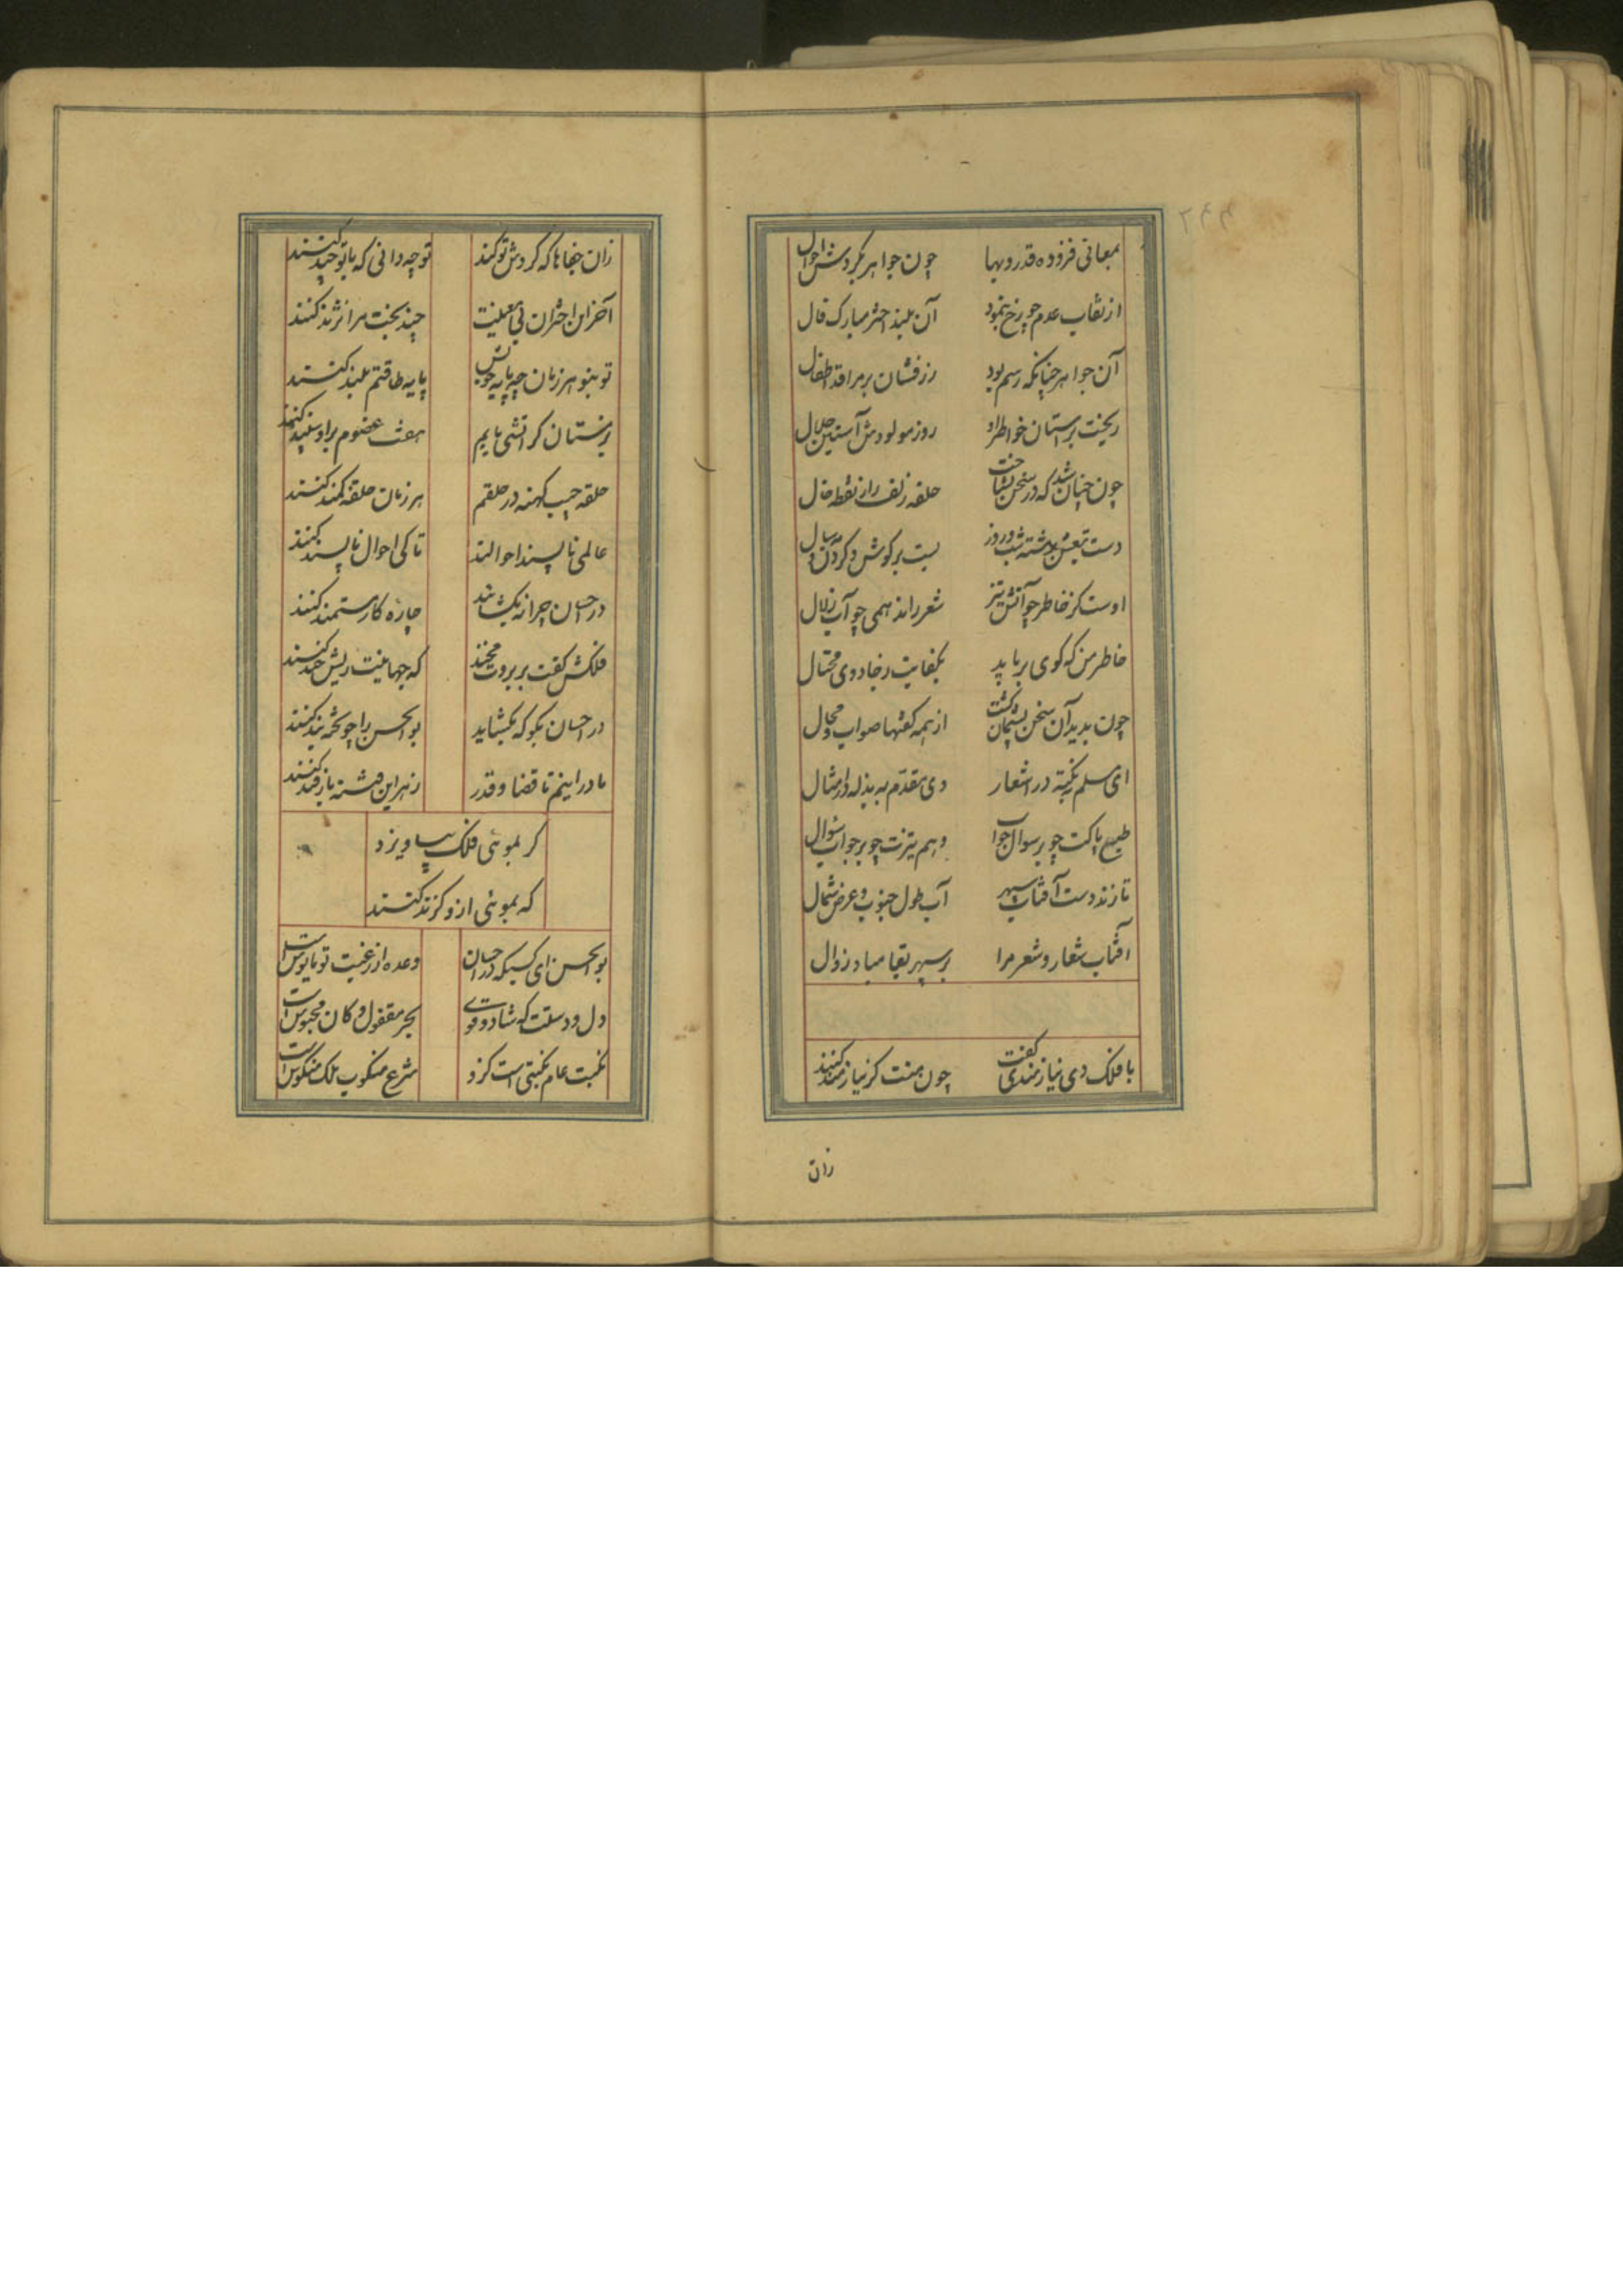 بمعانی فزوده قدر و بها چون جواهر بگردش احوال
از نقاب عدم چو رخ بنمود آن بلند اختر مبارک فال
آن جواهر چنانکه رسم بود رزفشان بر مراقد اطفال
ریخت بر استان خواطر او روز مولودش آستین جلال
چون چنان شد که در سخن بشناخت حلقه زلف را از نقطه خال
دست شب و روز بست بر کوش و کردن
اوست کز خاطر چو آتش تیز شعر راند همی چو آب زلال
خاطر من که کوی برباید بکفایت ز جادوی محتال
چون بدید آن سخن پشیمان کشت از همه کفتها صواب و محال
ای مسلم بنکته در اشعار وی مقدم به بذله در امثال
طبع پاکت چو بر سوال جواب وهم تیزت چو بر جواب سوال
تا زند دست آفتاب سپهر آب طول جنوب و عرض شمال
آفتاب شعار و شعر مرا بر سپهر بقا مباد زوال
با فلک دی نیازمندی کفت چون بمنت کر نیازمند کنند
زان
زان جفاها که کردش تو کند تو چه دانی که با تو چند کنند
آخر این اختران بی معنیت چند بخت مرا نژند کنند
تو بنو هر زمان چه پایه خویش پایه طاقتم بلند کنند
بر ستان کر آتشی یابم هفت عضوم برو سپند کنند
حلقه جیب کهنه در حلقم هر زمان حلقه کمند کنند
عالمی ناپسند احوالند تا کی احوال ناپسند کنند
در احسان چرا نه بکشایند چاره کار مستمند کنند
فلکش کفت بر بروت مخند که جهانیت ریش خند کنند
در احسان بکو که بکشاید بو الحسن را چو تخته بند کنند
ما دراینم تا قضا و قدر زهر این فتنه باز قند کنند
کر بموئی فلک بیاویزد
که بموئی ازو کزند کنند
بو الحسن ای کسیکه در احسان وعده از رغبت تو مایوس است
دل و دستت که شاد و قوی بحر مقفول و کان محبوس است
نکبت عام نکبتی است کزو شرع منکوب ملک منکوس است